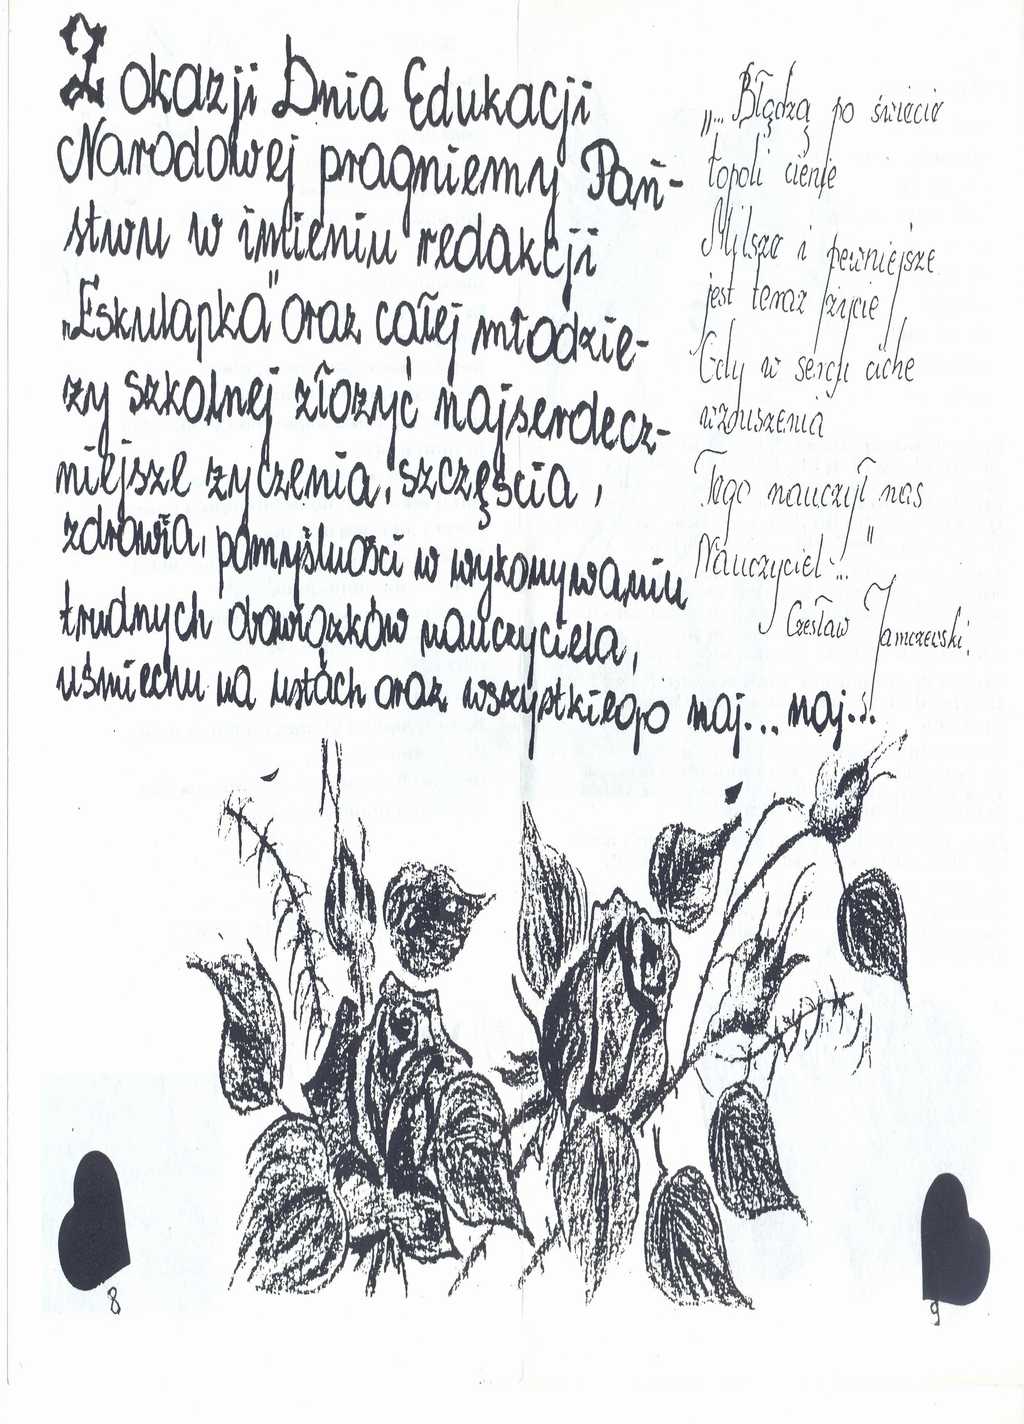 Z okazji Dnia Edukacji
Narodowej pragniemy Pań-
stwu w imieniu redakcji
„Eskulapka" oraz całej młodzie-
ży szkolnej złożyć najserdecz-
niejsze życzenia, szczęścia,
zdrowia, pomyślności w wykonywaniu
trudnych obowiązków nauczyciela,
uśmiechu na ustach oraz wszystkiego naj... naj...
„... Błądzą po świecie
topoli cienie
Milsze i pewniejsze
jest teraz życie
Gdy w sercu ciche
wzruszenia
Tego nauczył nas
Nauczyciel..."
Czesław Jamczewski.
8
9